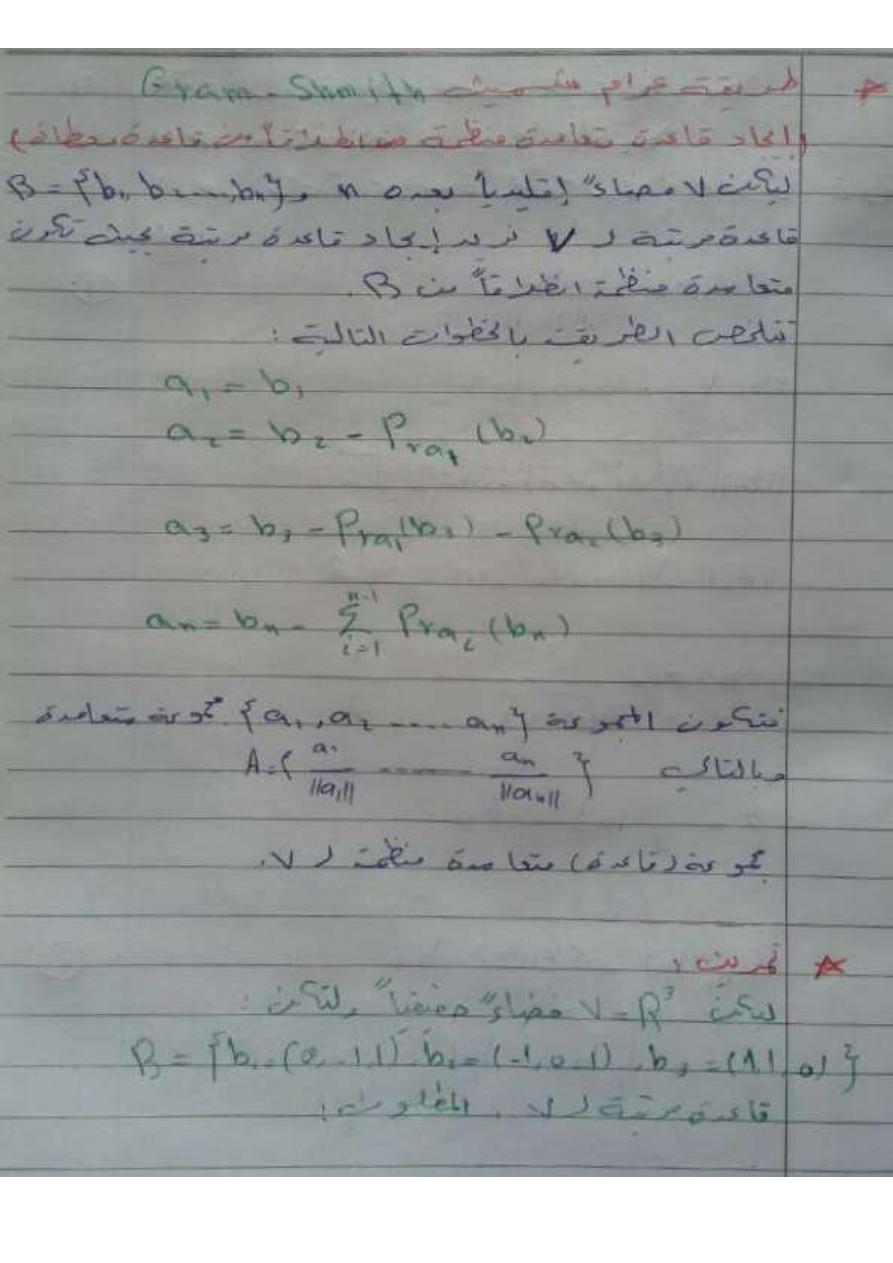 طريقة غرام شميث Gram - Shmith
(إيجاد قاعدة متعامدة منظمة من انطلاقاً من قاعدة معطاة)
ليكن V فضاءً إقليدياً بعده n و B = {b₁, b ...., bₙ}
قاعدة مرتبة لـ V نريد إيجاد قاعدة مرتبة بحيث تكون
متعامدة منظمة انطلاقاً من B.
تتلخص الطريقة بالخطوات التالية :
a₁ = b₁
a₂ = b₂ - Pra₁ (b₂)
a₃ = b₃ - Pra₁(b₃) - Pra₂(b₃)
aₙ = bₙ - Σ_{i=1}^{n-1} Praᵢ (bₙ)
فتكون المجموعة {a₁, a₂ ..... aₙ} مجموعة متعامدة
وبالتالي A = { a₁/||a₁|| ........ aₙ/||aₙ|| }
مجموعة (قاعدة) متعامدة منظمة لـ V.
تمرين :
ليكن V = R³ فضاءً حقيقياً ولتكن :
B = {b₁ = (0, -1, 1), b₂ = (-1, 0, -1), b₃ = (1, 1, 0)}
قاعدة مرتبة لـ V , المطلوب :